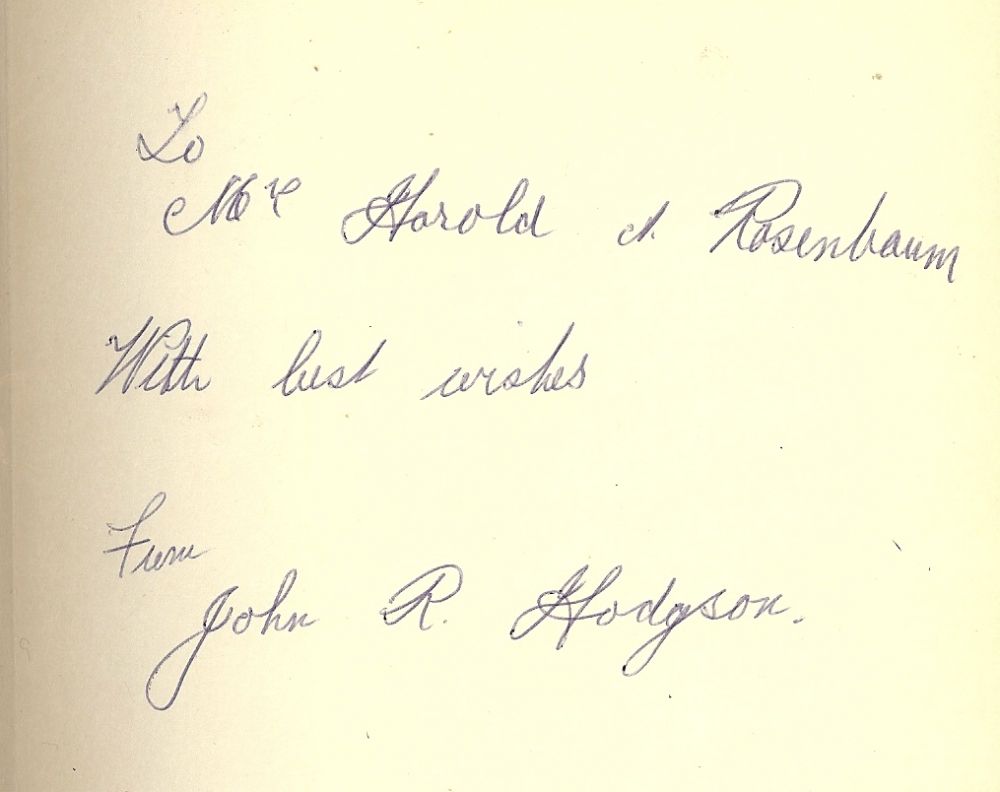 To
Mr Harold A. Rosenbaum
With best wishes
From
John R. Hodgson.